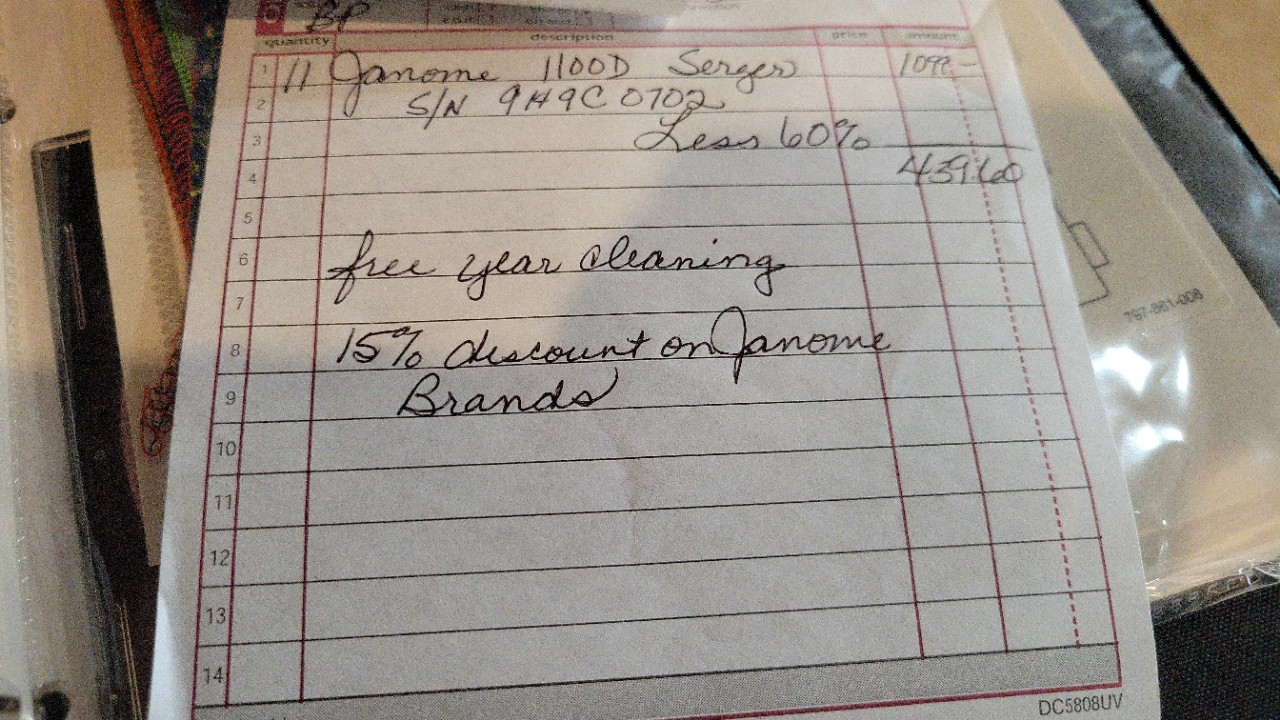 BP
quantity description price amount
1 11 Janome 1100D Serger 1099 -
2 S/N 9H9C0702
3 Less 60%
4 439.60
5
6 free year cleaning
7
8 15% discount on Janome
9 Brands
10
11
12
13
14
DC5808UV
757-861-008